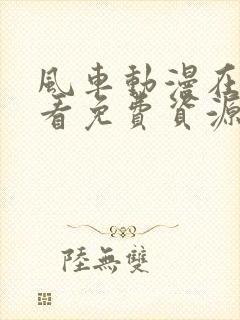 風車動漫在
看免費資源
陸無雙